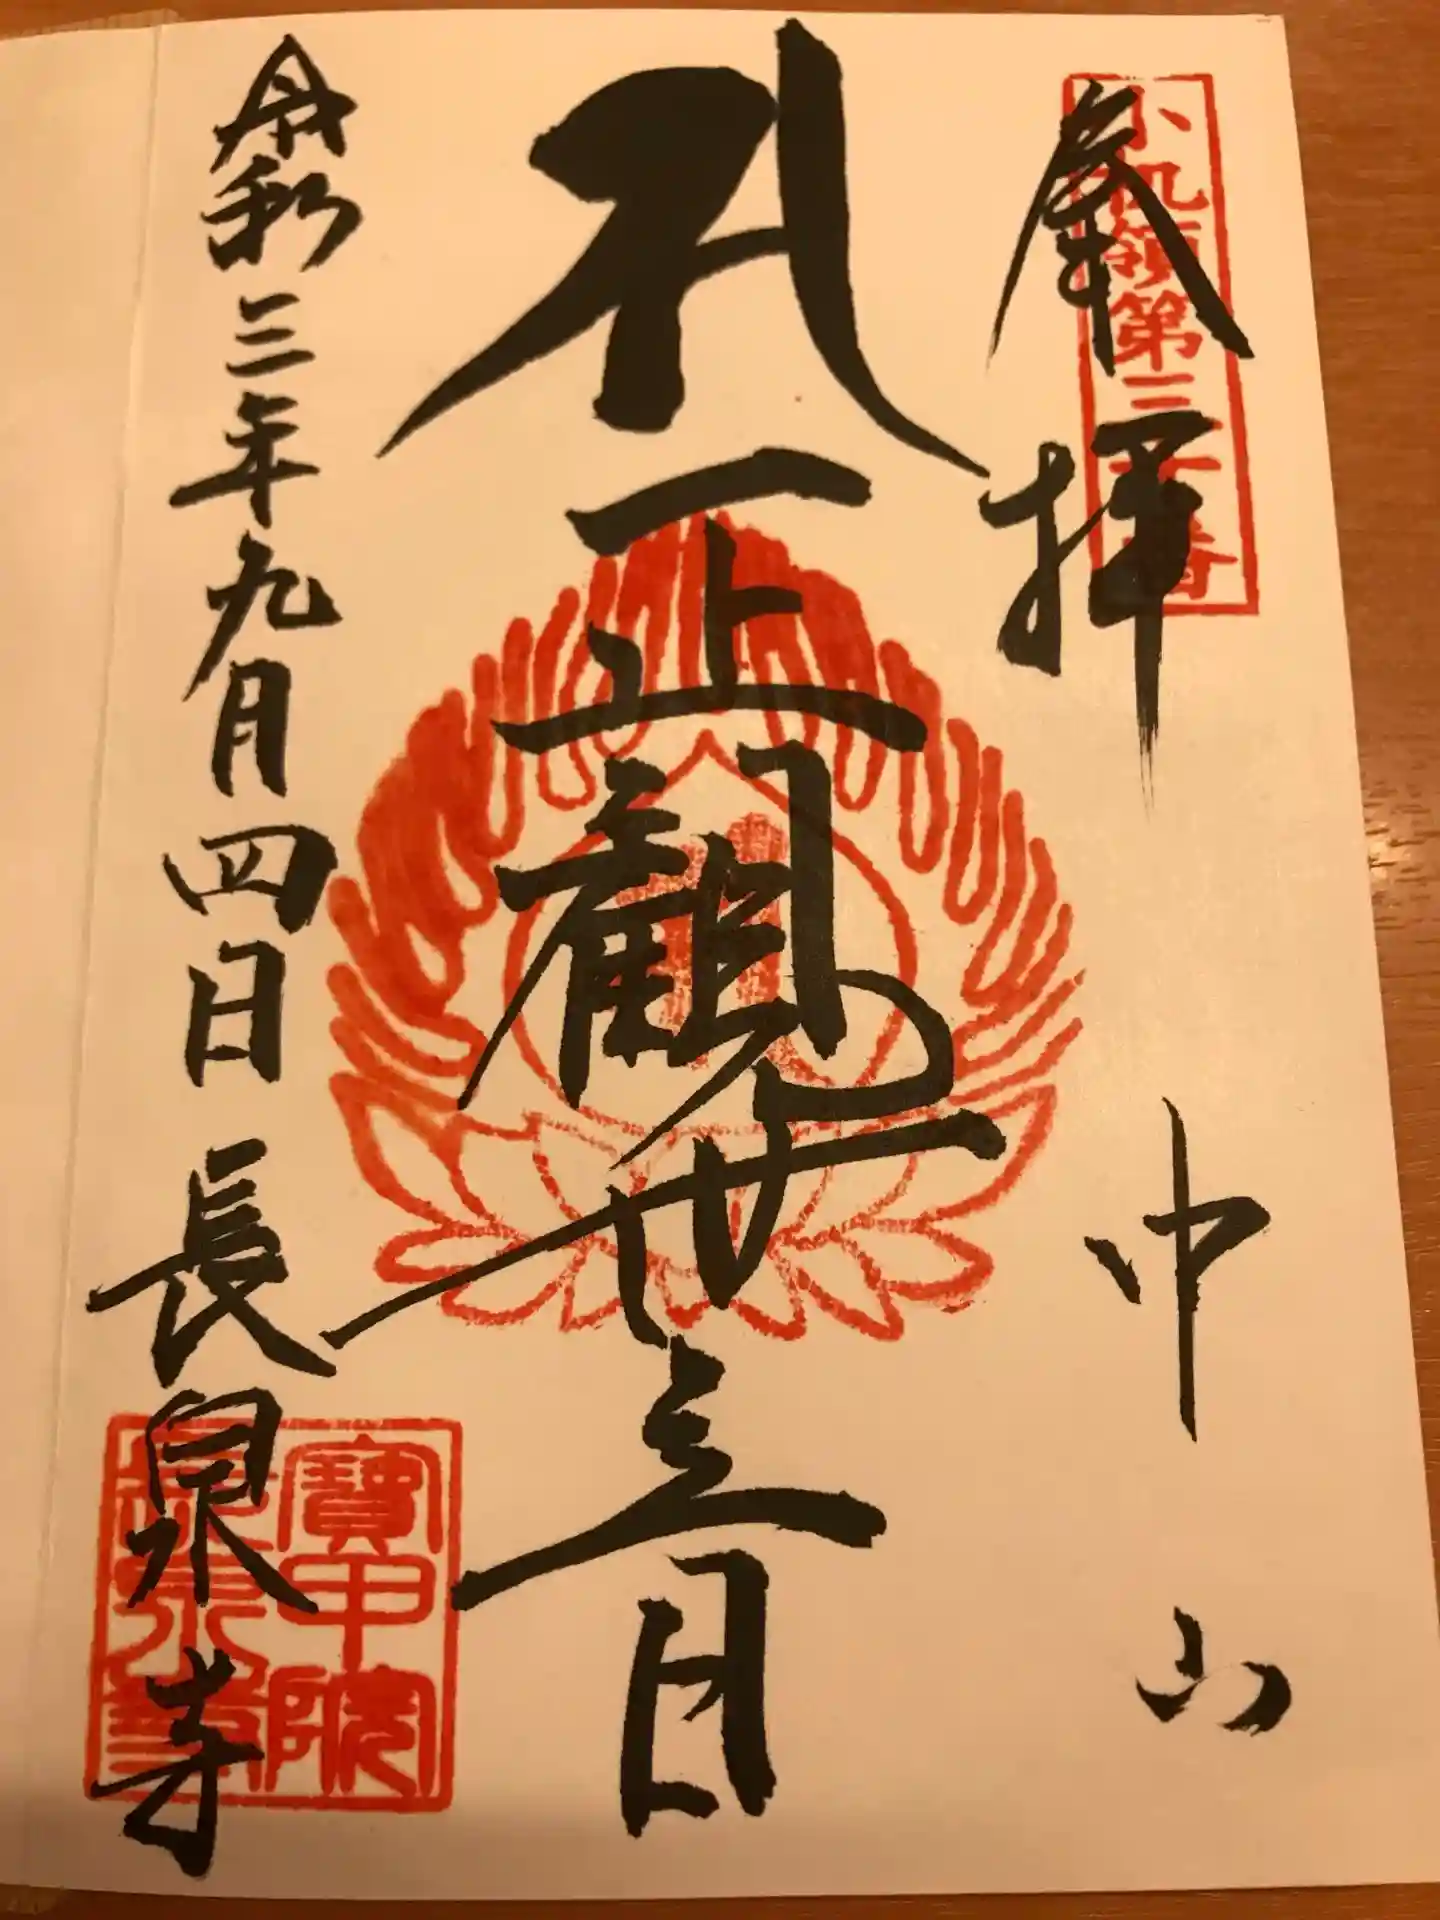 小机領第三十番
奉拝
中山
正観世音
令和三年九月四日 長泉寺
寶甲院
長泉寺